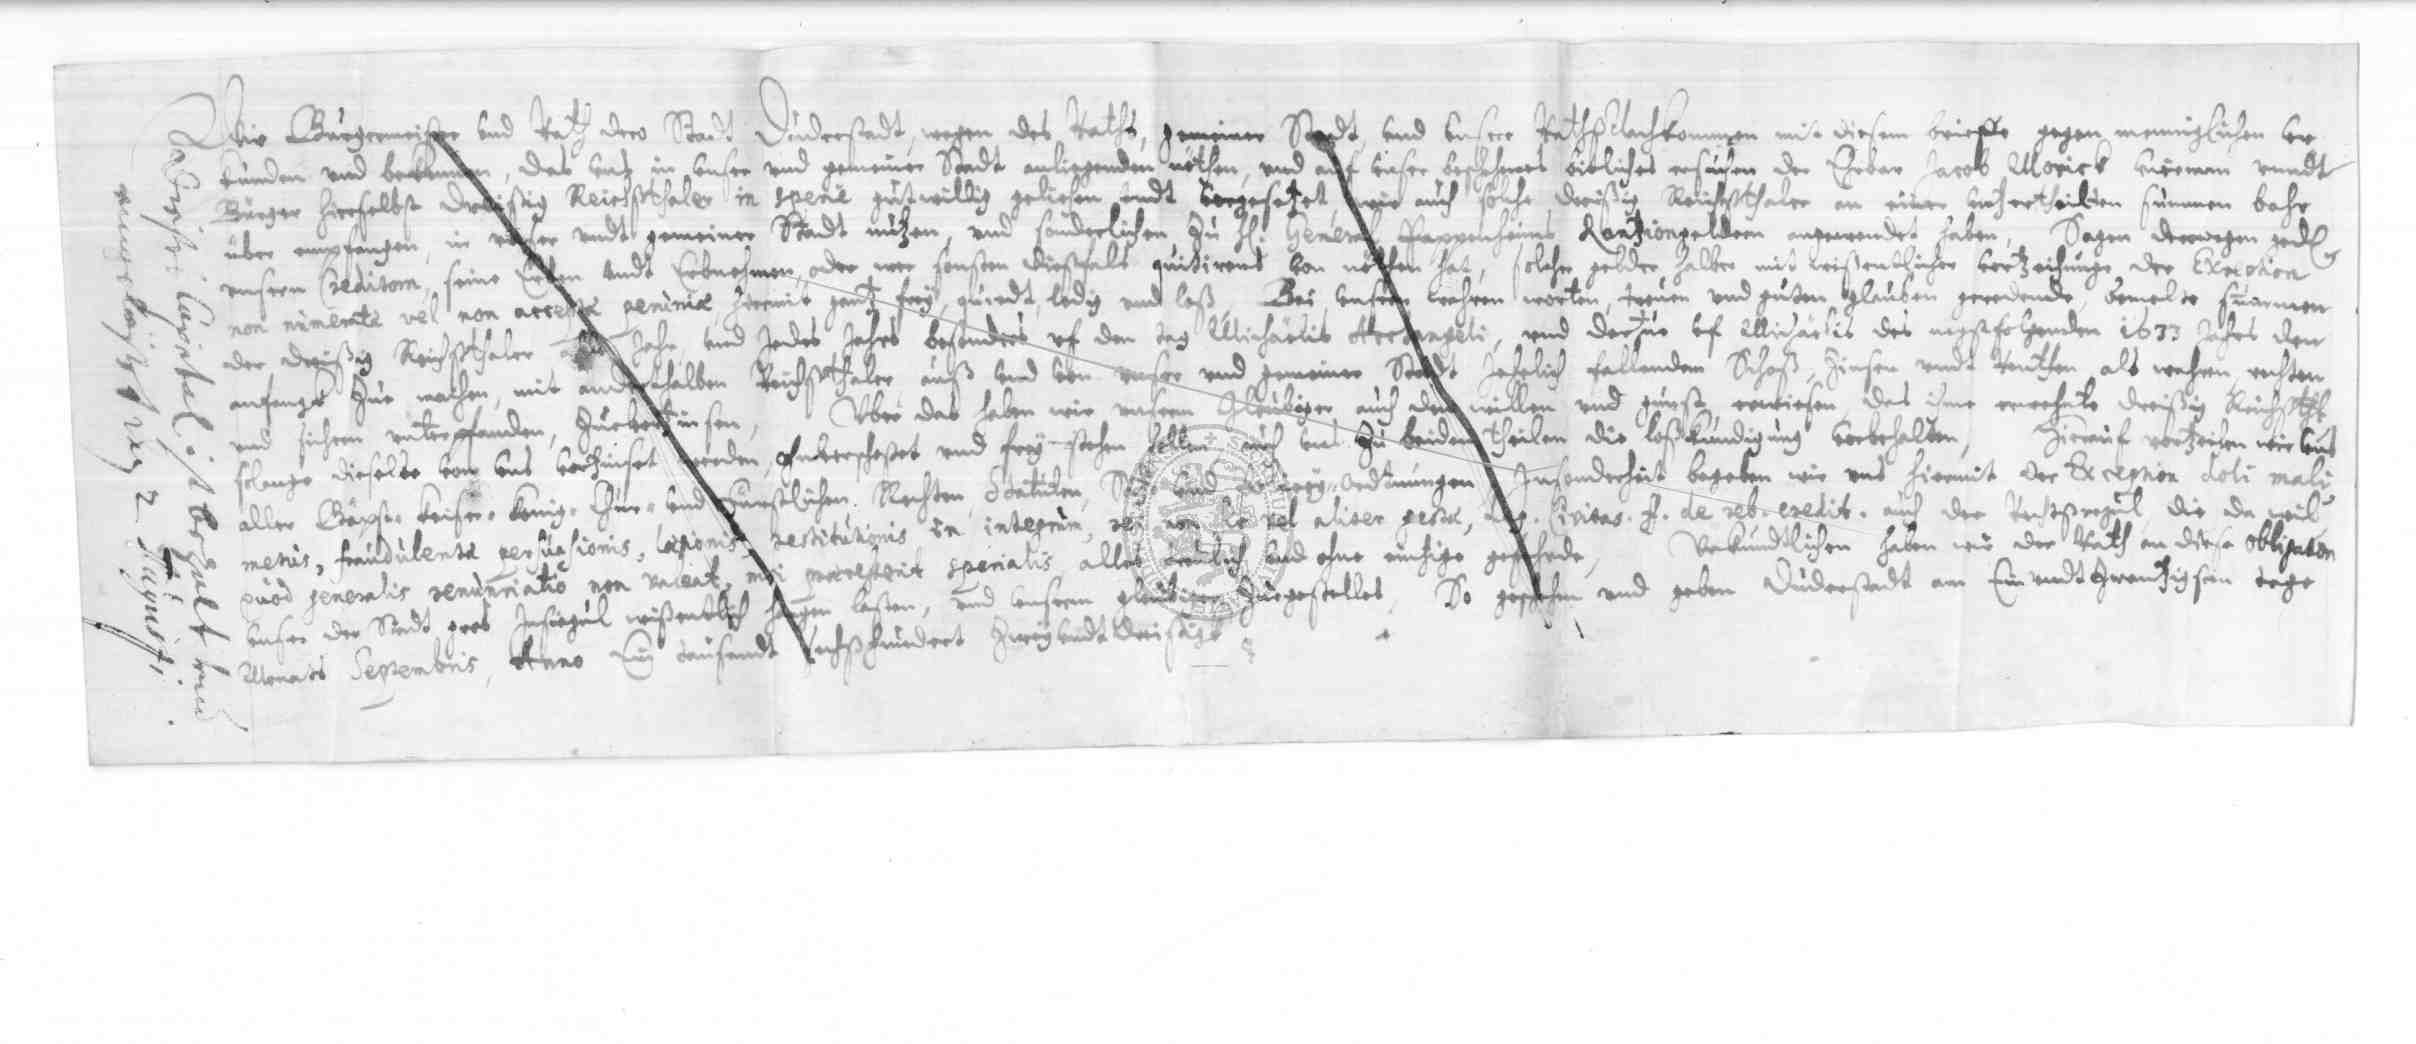 Wir Bürgermeister und Rath dero Stadt Duderstadt, wegen des Raths, gemeiner Stadt und unsere Rathß Nachkommen mit diesem brieffe gegen menniglichen ver
kunden und bekennen, das unß in unser und gemeiner Stadt anliegenden nöthen, und auf unser beschehenes bitliches ersuchen der Erbar Jacob Morick undt
Bürger hierselbst dreissig Reichsthaler in specie gutwillig geliehen undt vorgesetzet, wie auch solche dreißig Reichßthaler an einer unzertheilten summen bahr
über empfangen, in unser undt gemeiner Stadt nutzen, und sonderlichen zu H. General Pappenheims Rantziongeldern angewendet haben, Sagen derowegen gedl.
unsern Creditorn, seine Erben undt Erbnehmen, oder wer sonsten dießfals quitirens von nöthen hat, solcher gelder halber mit wißentlicher vertzeihunge der Exception
non numeratæ vel non acceptæ pecuniæ, hiermit gantz frey, quiedt, ledig und loß, Bei unsern wahren worten, treuen und guten glauben geredende, bemelte summen
der dreißig Reichßthaler Jahr, und Jedes Jahrs besonders uf den tag Michaelis Archangeli, und darzu uf Michaelis des negstfolgenden 1633 Jahrs den
anfangk zue machen, mit anderthalben Reichßthaler auß und von unser und gemeiner Stadt Jehrlich fallenden Schoß, Zinsen undt Renthen, als wahren, rechten
und sichern unterpfanden, zuverzinsen, Uber das haben wir unserm Gleubiger auch den willen und gunst erwiesen, das ihme dreißig Reichßth.
solange dieselbe von uns verzinset werden, unverschoßet und frey stehen sollen, auch uns zu beiden theilen die loßkündigung vorbehalten, Hierauf vertzeihen wir uns
aller Bäpst- keiser- König- Chur- und Fürstlichen Rechten, Statuten, und Ordnungen, Insonderheit begeben wir uns hiermit der Exception doli mali
metus, fraudulentæ persuasionis, læsionis, restitutionis in integrum, rei non sic vel aliter gestæ, leg. Civitas. ff. de reb. credit. auch der Rechtßregul, die da wil
quod generalis renunciatio non valeat, nisi præcesserit specialis, alles treulich und ohne einige geferde, Uhrkundtlichen haben wir der Rath an diese obligation
unser der Stadt gros Insiegul wißentlich hangen laßen, und unserm gleubiger zugestellet, So geschehen und geben Duderstadt am Ein undt zwantzigsten tage
Monats Septembris, Anno Ein tausendt sechßhundert zwey undt dreißigk
Capittel ist bezalt und
2 Augusti.